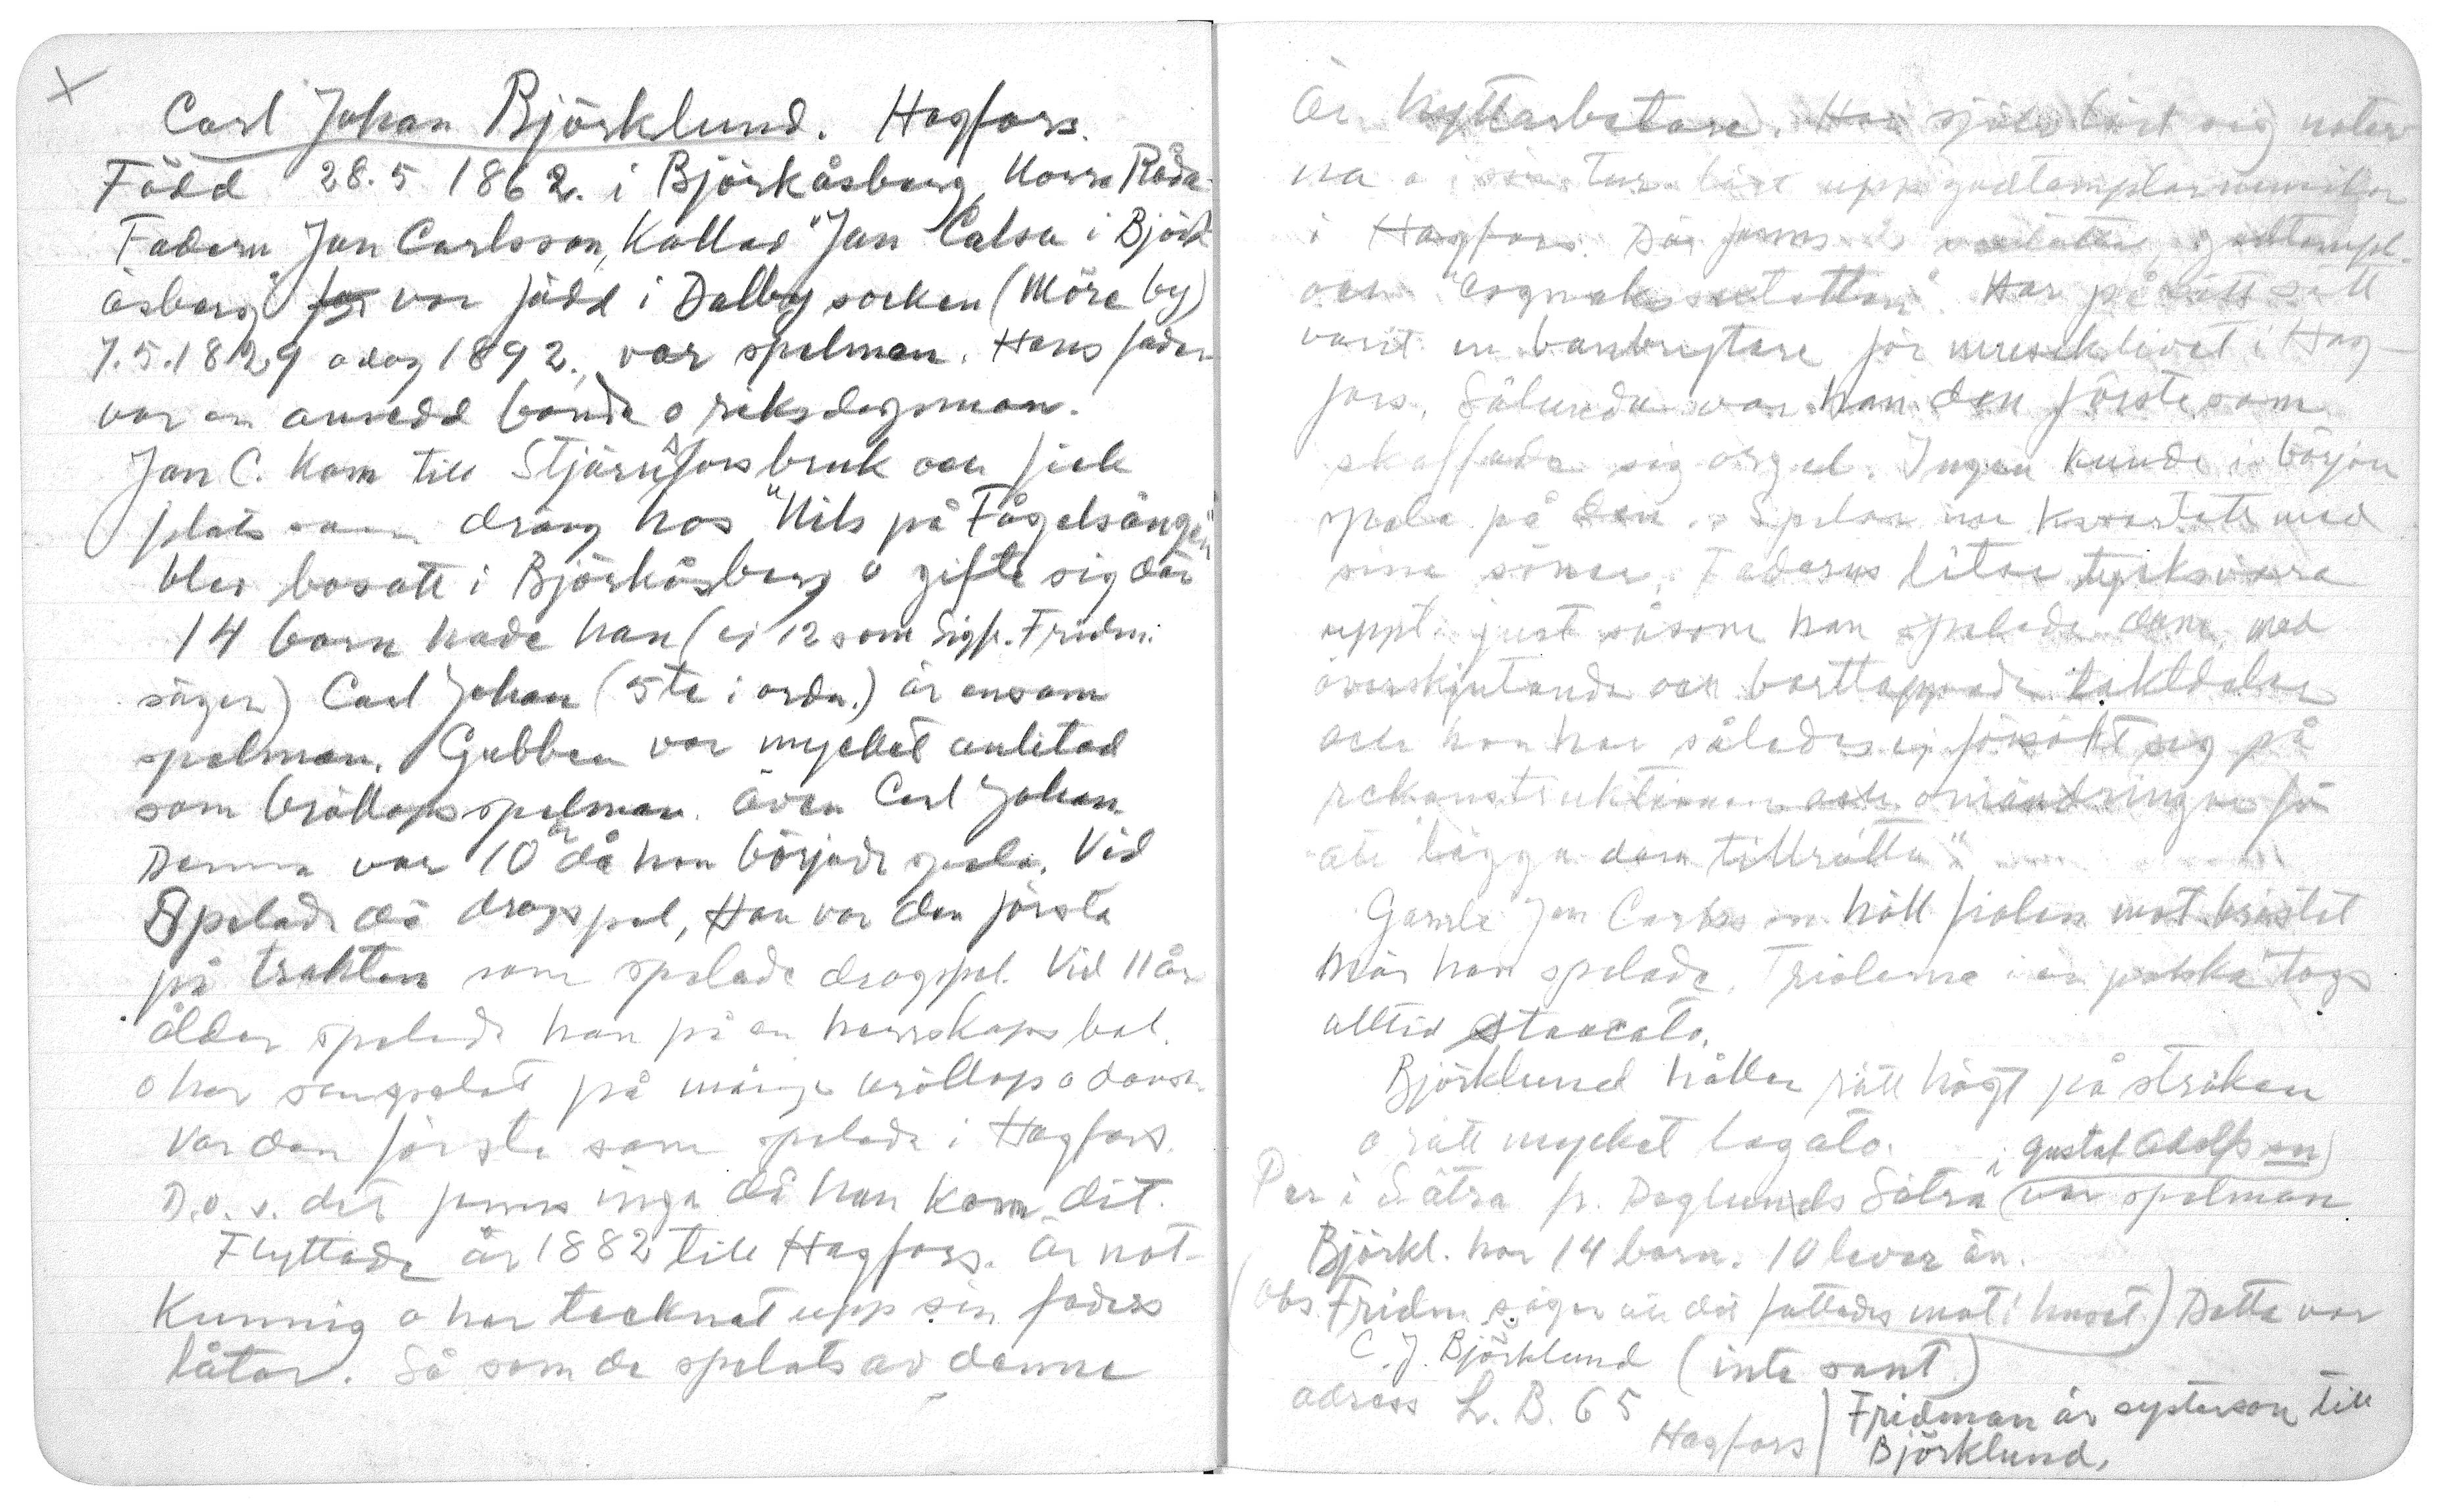 Carl Johan Björklund. Hagfors.
Född 28.5 1862. i Björkåsberg, Norra Råda
Fadern Jan Carlsson, Kallad "Jan Calsa i Björk
åsberg" var född i Dalby socken (Möre by)
7.5.1829 o dog 1892., var spelman. Hans fader
var en ansedd bonde o riksdagsman.
Jan C. kom till Stjärnsfors bruk och fick
plats som dräng hos "Nils på Fågelsången"
blev bosatt i Björkåsberg o gifte sig där
14 barn hade han (ej 12 som Sigfr. Fridm.
säger) Carl Johan (5te i ordn.) är ensam
spelman. Gubben var mycket anlitad
som bröllopsspelman. även Carl Johan.
Denna var 10 år då han började spela. Vid
Spelade då dragspel, Han var den första
på trakten som spelade dragspel. Vid 11 års
ålder spelade han på en herrskaps bal.
o har sen spelat på många bröllop o dans.
Var den första som spelade i Hagfors.
D.v.s. det fanns inga då han kom dit.
Flyttade år 1882 till Hagfors. är not-
kunnig o har tecknat upp sin faders
låtar. Så som de spelats av denne
Är hyttarbetare. Har själv lärt sig noter
na o i sin tur lärt upp godtemplarmusiker
i Hagfors. Där fanns godtempl.
och "Cognaksoktetten". Har på sätt
varit en banbrytare för musiklivet i Hag-
fors. Sålunda var han den förste som
skaffade sig orgel. Ingen kunde i början
spela på den. Spelar nu kvartett med
sina söner. Faderns låtar
uppt. just såsom han spelade dem, med
överskjutande och borttappade taktdelar
och han har således ej försökt sig på
rekonstruktioner och omändringar för
att "lägga dem tillrätta".
Gamle Jan Carlsson höll fiolen mot bröstet
när han spelade. Triolerna i en polska togs
alltid staccato.
Björklund håller rätt högt på stråken
o rätt mycket legato.
i Gustaf Adolfs sn
Per i Sätra fr. Daglunds Sätra var spelman
Björkl. har 14 barn. 10 lever än.
(obs. Fridm. säger att det fattades mat i huset.) Detta var
C. J. Björklund (inte sant.)
adress L. B. 65
Hagfors
Fridman är systerson till
Björklund.